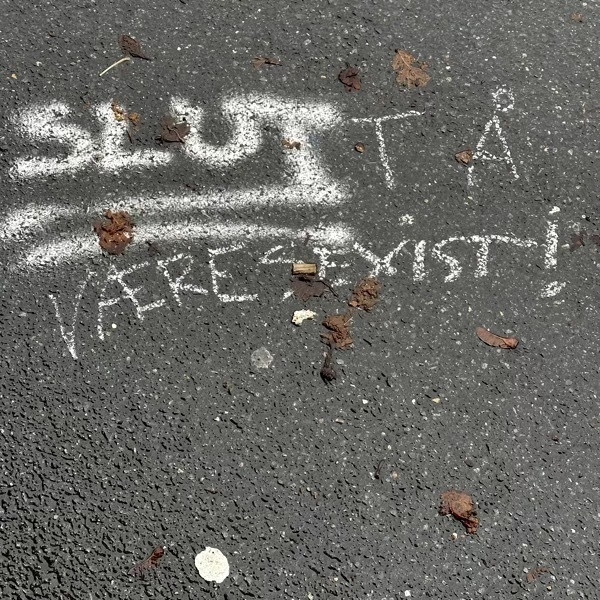 SLUTT Å
VÆRE SEXIST!